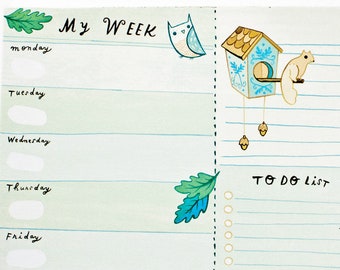 My Week
monday
Tuesday
Wednesday
Thursday
Friday
TO DO LIST